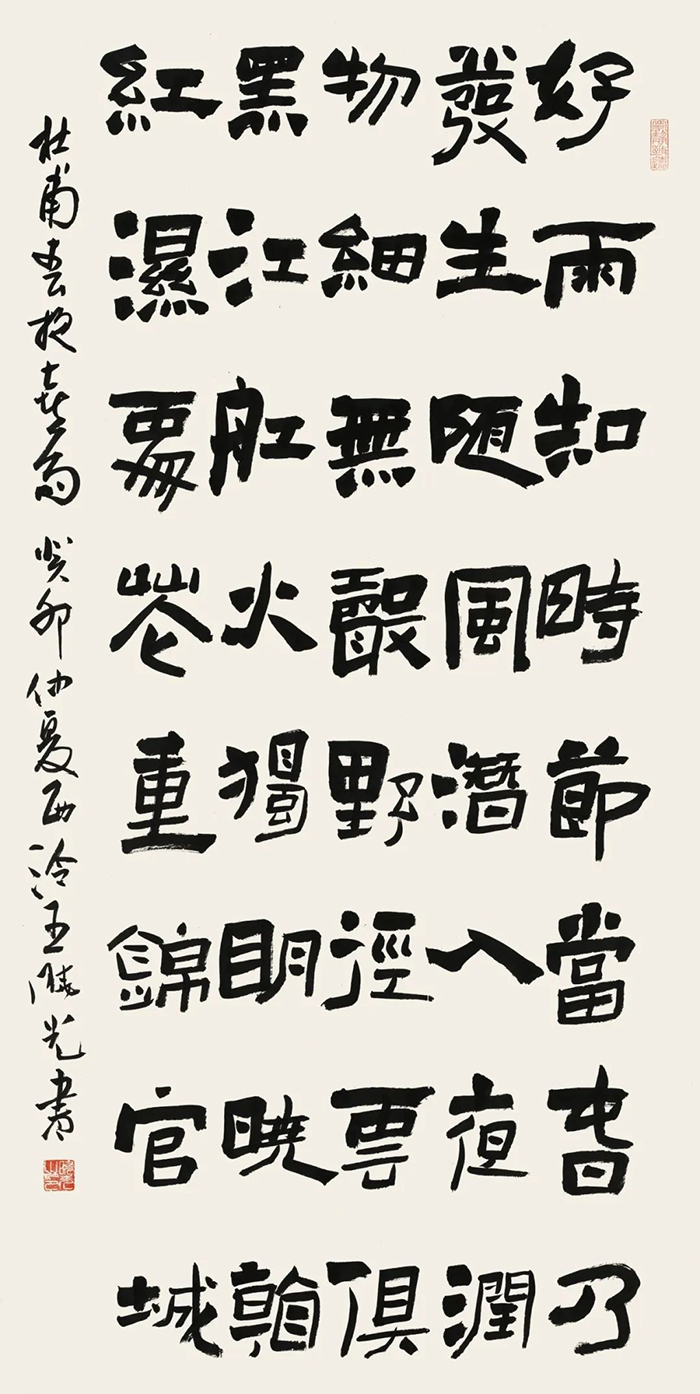 好雨知時節當春乃
發生随風潛入夜潤
物細無聲野徑雲俱
黑江舡火獨明曉看
紅濕處花重錦官城
杜甫春夜喜雨 癸卯仲夏西泠王光書